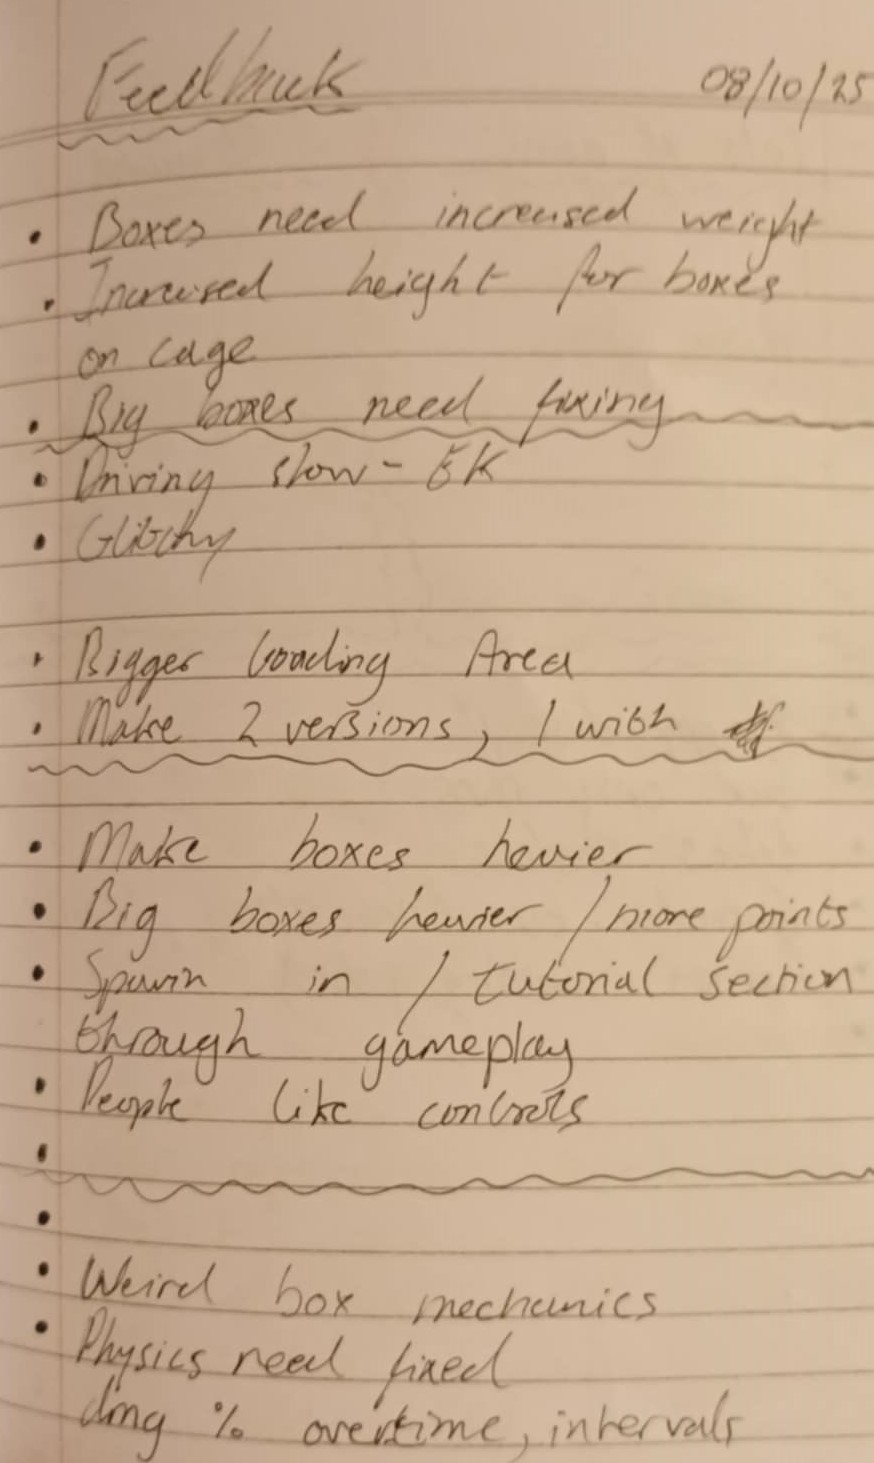 Feedback 08/10/25
• Boxes need increased weight
• Increased height for boxes
on cage
• Big boxes need fixing
• Driving slow - EK
• Glitchy
• Bigger loading Area
• Make 2 versions, 1 with
• Make boxes hevier
• Big boxes hevier / more points
• Spawn in / tutorial section
through gameplay
• People like controls
•
•
• Weird box mechanics
• Physics need fixed
dmg % overtime, intervals